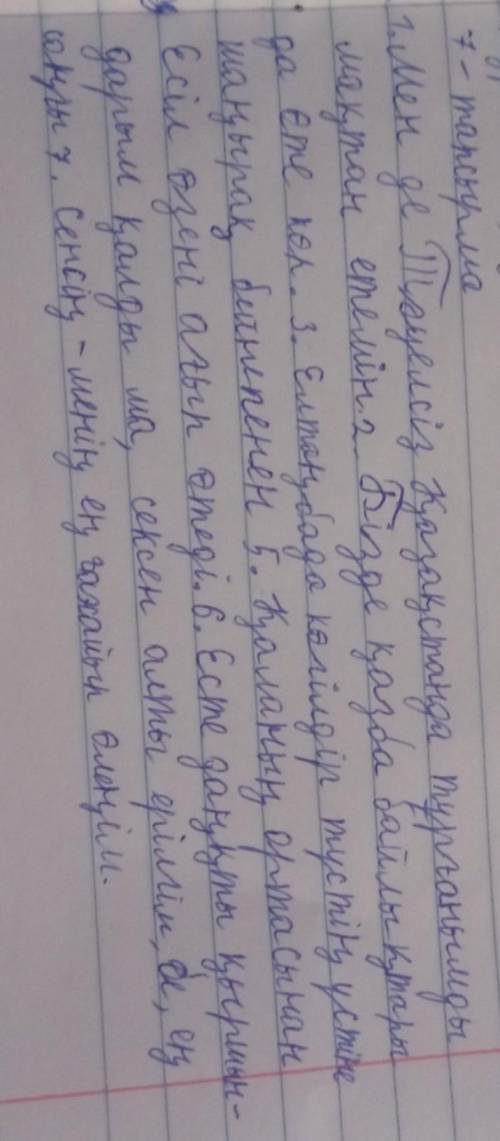 7 - тапсырма
1. Мен де Тәуелсіз Қазақстанда тұрғанымды
мақтан етемін. 2. Бізде қазба байлықтары
да өте көп. 3. Елтаңбада көгілдір түстің үстіне
шаңырақ бейнепенен 5. Қаланың ортасынан
Есіл өзені ағып өтеді. 6. Есте даңқты қыршын-
дарым қалды ма, сексен алты ерілгім, ең
соңғы 7. Сенсің - менің ең ғажайып өлеңім.